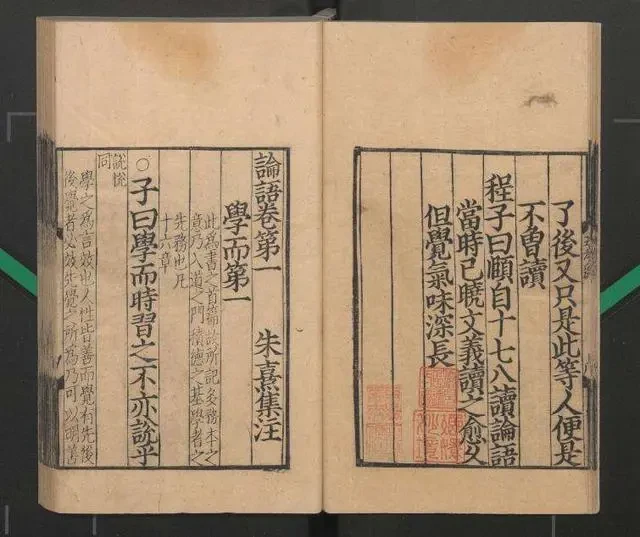 了後又只是此等人便是
不曾讀
程子曰頤自十七八讀論語
當時已曉文義讀之愈久
但覺氣味深長
論語卷第一　朱熹集注
學而第一
此為書之首篇故所記多務本之
意乃入道之門積德之基學者之
先務也凡
十六章
○子曰學而時習之不亦說乎
說悅
同
學之為言效也人性皆善而覺有先後
後覺者必效先覺之所為乃可以明善